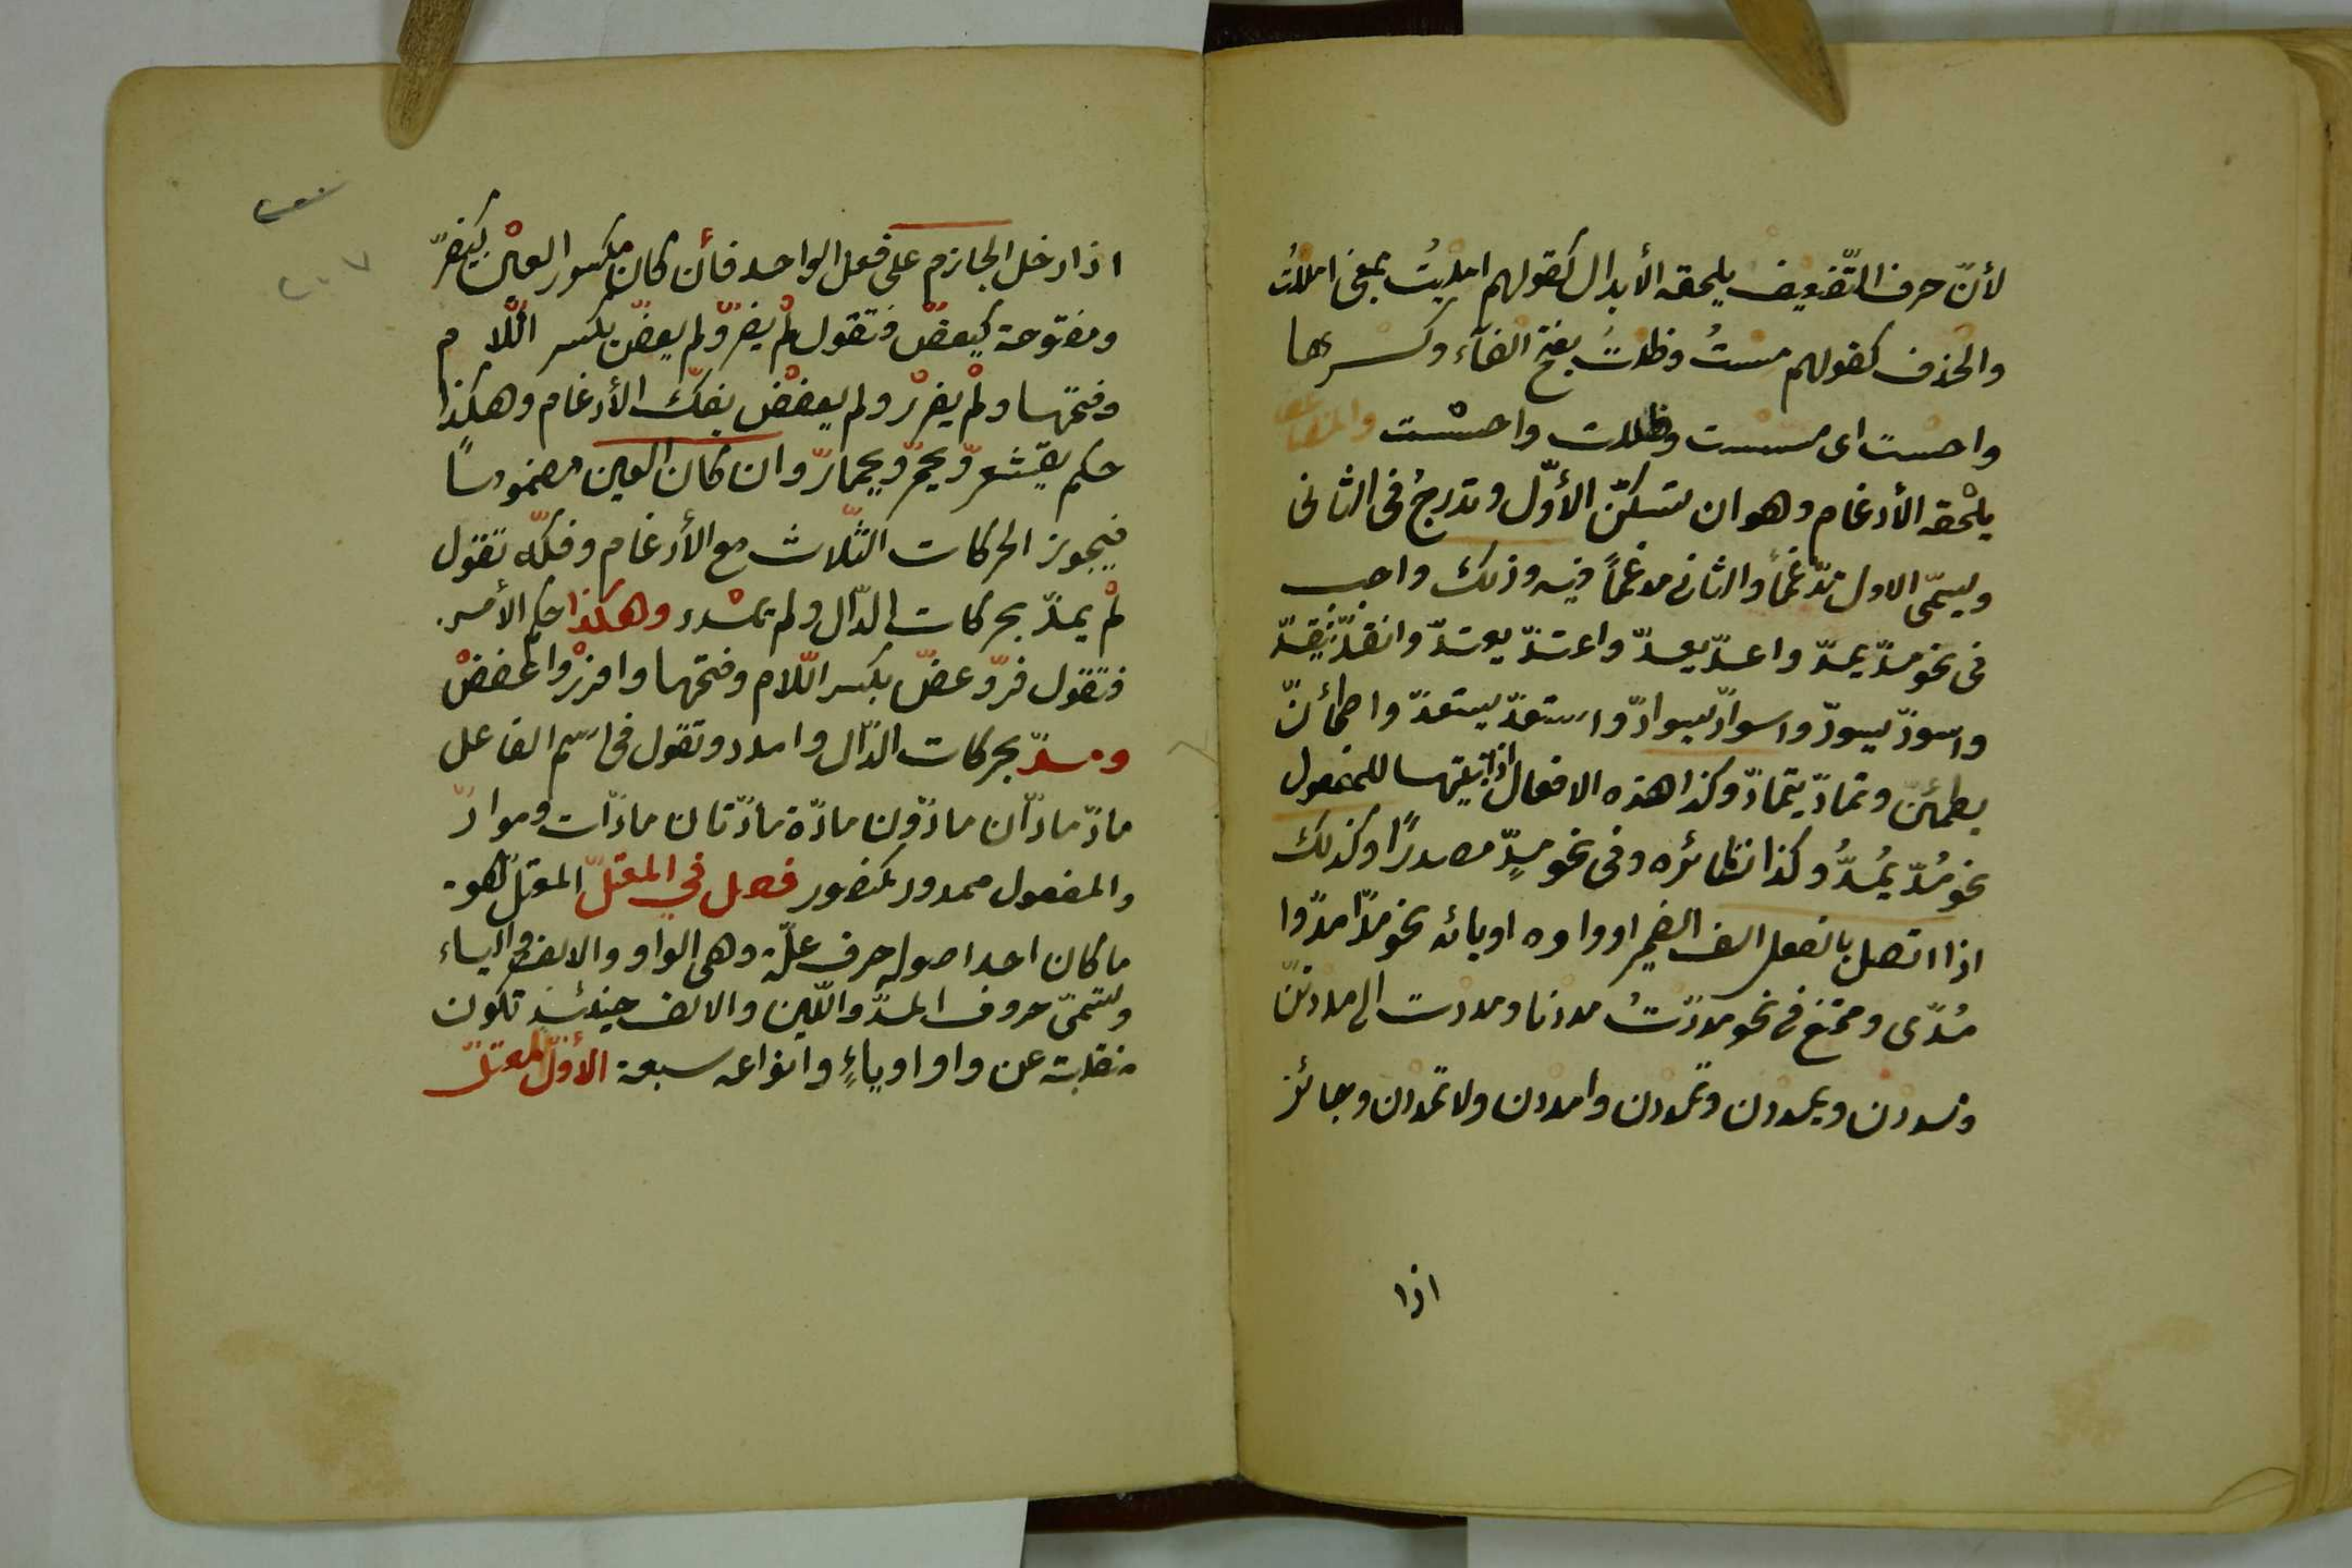 لأنّ حرف التّضعيف يلحقه الأبدال كقولهم امليتُ بمعنى امللتُ
والحذف كقولهم مستُ وظلتُ بفتح الفاء وكسرها
واحست اى مسست وظللت واحسست والمضاعف
يلحقه الأدغام وهو ان تسكّن الأوّل وتدرجُ فى الثانى
ويسمّى الاول مدّغماً والثانى مدغماً فيه وذلك واجب
فى نحو مدّ يمدّ واعدّ يعدّ واعتدّ يعتدّ وانقدّ ينقدّ
واسودّ يسودّ واسوادّ يسوادّ واستعدّ يستعدّ واطمأنّ
يطمئنّ وتمادّ يتمادّ وكذا هذه الافعال اذا بنيتها للمفعول
نحو مُدّ يُمدُّ وكذا نظائره وفى نحو مدٍّ مصدرًا وكذلك
اذا اتصل بالفعل الف الضمير او واوه او يائه نحو مدّا مدّوا
مُدّى وممتنع فى نحو مددتُ مددنا ومددت الى مددتنّ
ومددن ويمددن وتمددن وامددن ولا تمددن وجائز
اذا
اذا دخل الجازم على فعل الواحد فأن كان مكسور العين كيفرّ
ومفتوحة كيعضّ فتقول لم يفرّ ولم يعضّ بكسر اللّام
وفتحها ولم يفرر ولم يعضض بفكّ الأدغام وهكذا
حكم يقشعرّ ويحمرّ ويحمارّ وان كان العين مضمومًا
فيجوز الحركات الثّلاث مع الأدغام وفكّه تقول
لم يمدّ بحركات الدّال ولم يمدد وهكذا حكم الأمر
فتقول فرّ وعضّ بكسر اللّام وفتحها وافرر واعضض
ومدّ بحركات الدّال وامدد وتقول فى اسم الفاعل
مادّ مادّان مادّون مادّة مادّتان مادّات وموادّ
والمفعول ممدود كمنصور فصل في المعتلّ المعتلّ هو
ما كان احد اصوله حرف علّة وهى الواو والالف والياء
وتسمّى حروف المدّ واللّين والالف حينئذٍ تكون
منقلبة عن واو او ياءٍ وانواعه سبعة الأوّل المعتلّ